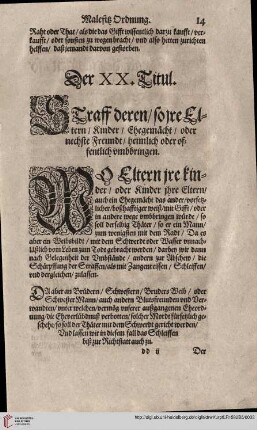 Malefitz Ordnung. 14
Raht oder That / als die das Gifft wissentlich darzu kaufft / ver-
kaufft / oder sonsten zu wegen bracht / vnd also hetten zurichten
helffen / daß jemandt darvon gestorben.
Der XX. Titul.
Straff deren / so jre El-
tern / Kinder / Ehegemächt / oder
nechste Freundt / heimlich oder of-
fentlich vmbbringen.
WO Eltern jre kin-
der / oder Kinder jhre Eltern /
auch ein Ehegemächt das ander / vorsetz-
licher boßhafftiger weiß / mit Gifft / oder
in andere wege vmbbringen würde / so
soll derselbig Thäter / so er ein Mann /
zum wenigsten mit dem Radt / Da es
aber ein Weibsbildt / mit dem Schwerdt oder Wasser vnnach-
läßlich vom Leben zum Todt gebracht werden / darbey wir dann
nach Gelegenheit der Vmbständt / andern zur Abschew / die
Schärpffung der Straffen / als mit Zangen reissen / Schleiffen /
vnd dergleichen / zulassen.
DA aber an Brüdern / Schwestern / Bruders Weib / oder
Schwester Mann / auch andern Blutsfreunden vnd Ver-
wandten / vnter welchen / vermög vnserer außgangenen Eheord-
nung / die Eheverlöbnuß verbotten / solcher Mordt fürsetzlich ge-
schehe / so soll der Thäter mit dem Schwerdt gericht werden /
Vnd lassen wir in diesem fall das Schleiffen
biß zur Richtstatt auch zu.
dd ij Der